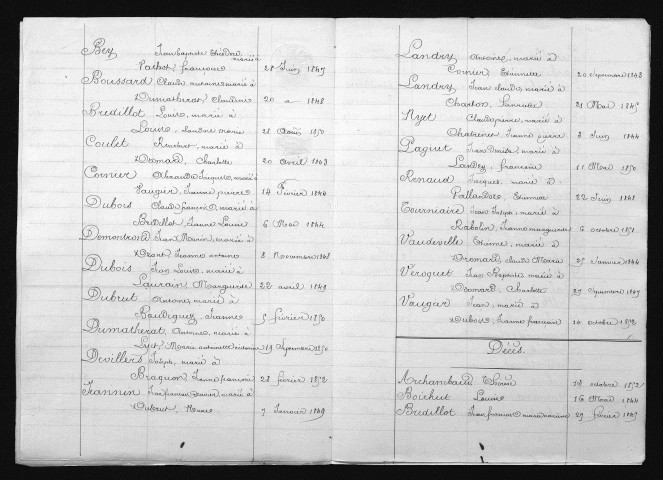 Bey Jean baptiste Théodore marié à
Pachot, françoise 28 Juin 1847
Boussard Claude antoine marié à
Dumatherat, Claudine 20 a 1848
Bredillot, Louis, marié à
Louis, Claudine marie 28 Août 1850
Coulet marié à
Demard, Charlotte 20 avril 1843
Cornier Jacques, marié à
Jeanne pierre 14 février 1844
Dubois Claude françois, marié à
Bredillot, Jeanne Louise 6 Mai 1844
Domontrond Jean Marie, marié à
Jeanne antoine 8 Novembre 1848
Dubois Jean Louis, marié à
Lauran, Marguerite 22 avril 1849
Dubrut Antoine, marié à
Jeanne 5 février 1850
Dumatherat, Antoine, marié à
Lyet, Marie antoinette 19 Septembre 1850
Devillers Joseph, marié à
Bragnon, Jeanne françoise 28 février 1852
Jeannin Jean françois, marié à
Marie 7 Janvier 1849
Landry Antoine, marié à
Cornier, Etiennette 20 Septembre 1843
Landry Jean claude, marié à
Charlon, 21 Mai 1845
Nyet Claude pierre, marié à
Chatrenet, Jeanne pierre 3 Juin 1844
Paguet marié à
Landry, françoise 11 Mai 1850
Renaud Jacques, marié à
Etiennette 22 Juin 1848
Tourniaire Jean Joseph, marié à
Rabolin, Jeanne marguerite 6 octobre 1851
Vaudeville Etienne, marié à
Claude Marie 25 Janvier 1844
Veroguet Jean Baptiste, marié à
Demard, Charlotte 29 Septembre 1847
Vaugar Jean, marié à
Dubois, Jeanne françoise 14 octobre 1852
Décès.
Archambaud 19 octobre 1852
Boichut Louise 16 Mai 1844
Bredillot Jean françois 27 février 1847